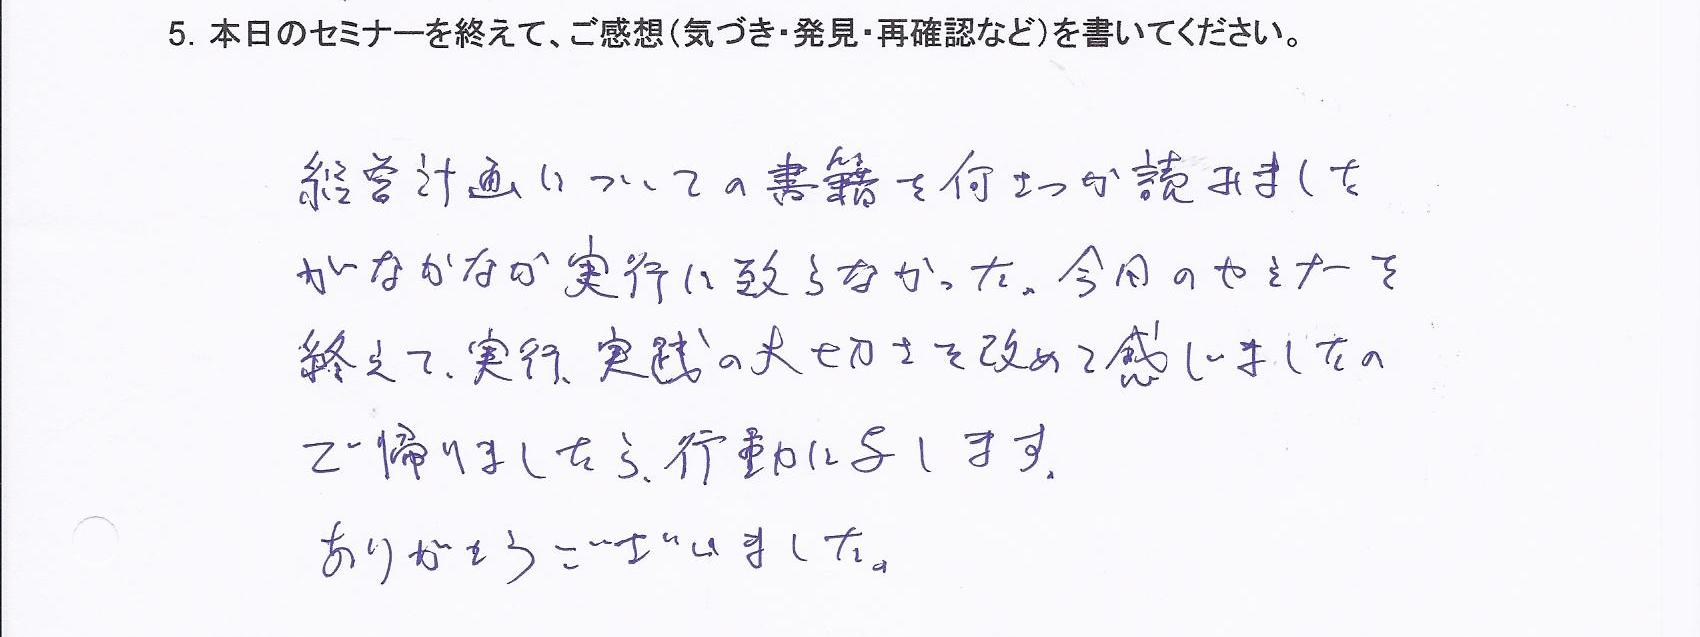 5. 本日のセミナーを終えて、ご感想(気づき・発見・再確認など)を書いてください。
経営計画についての書籍を何さつか読みました
がなかなか実行に致らなかった。今日のセミナーを
終えて、実行、実践の大切さを改めて感じましたの
で帰りましたら、行動に写します。
ありがとうございました。